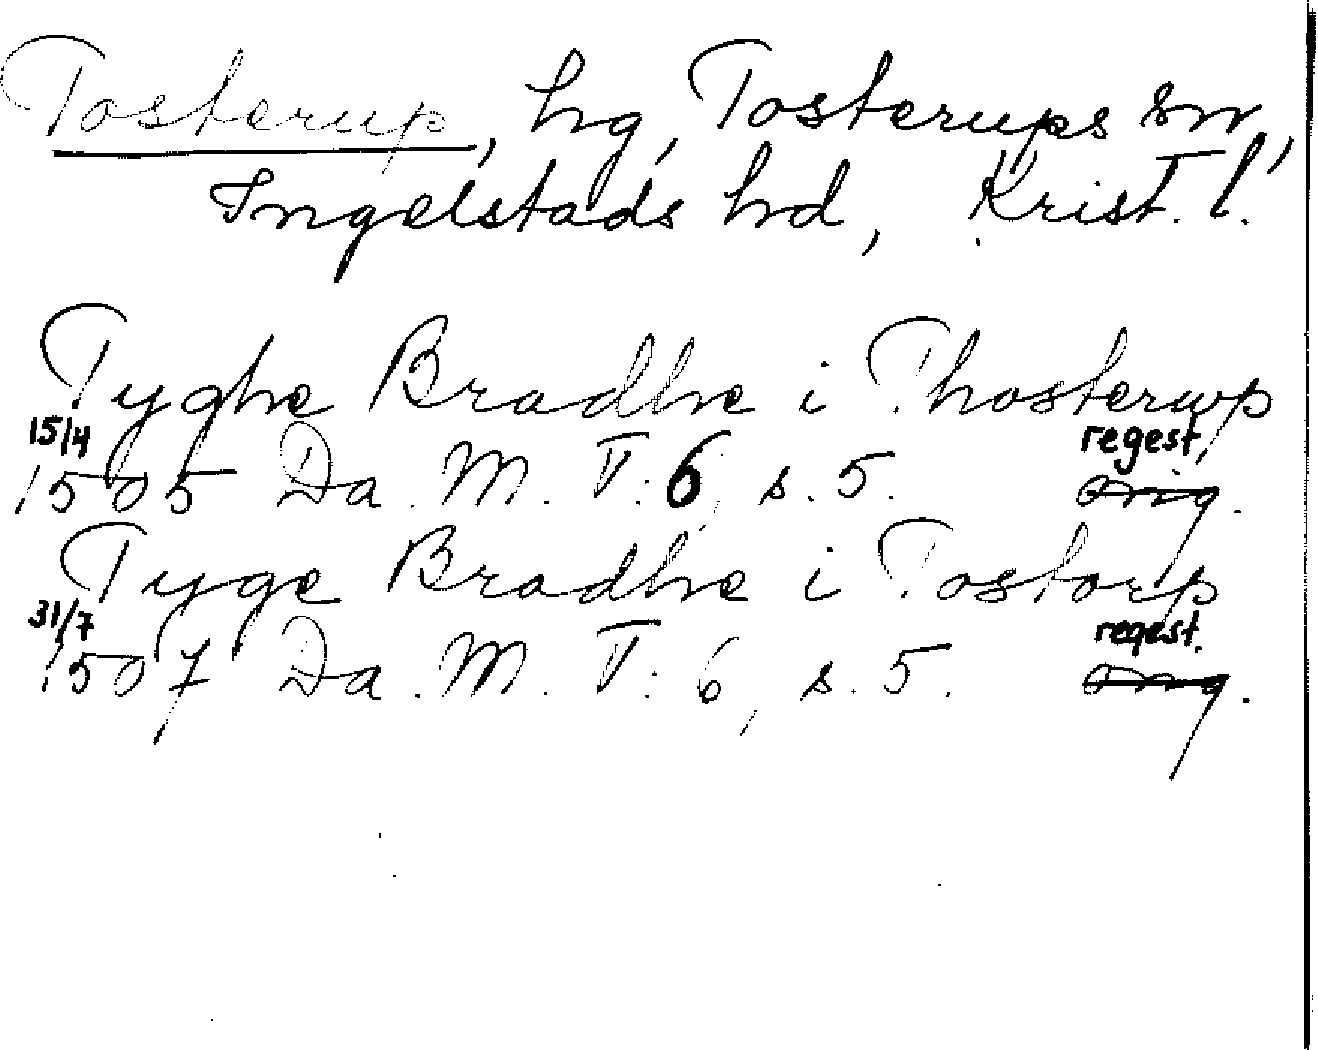 Tosterup, hg, Tosterups sn,
Ingelstads hd, Krist. l.
Tyghe Bradhe i Thosterwp
15/4 regest,
1505 Da. M. V: 6, s. 5. orig.
Tyge Bradhe i Tostorp
31/7 regest.
1507 Da. M. V: 6, s. 5. orig.